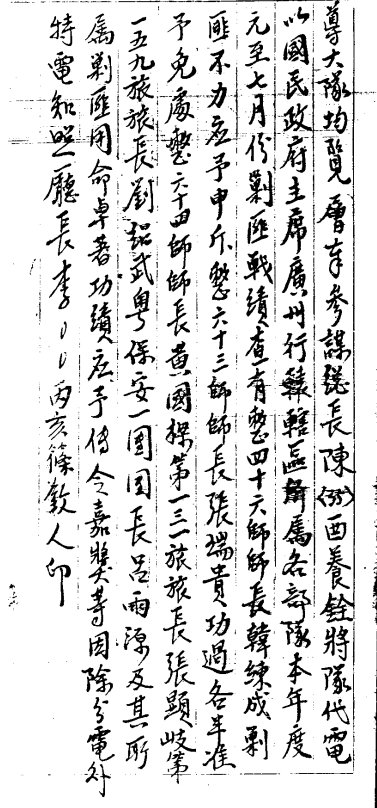 導大隊均覽層奉參謀總長陳(35)酉養銓將隊代電
以國民政府主席廣州行轅轄區屬各部隊本年度
元至七月份剿匪戰績查有整四十六師師長韓練成剿
匪不力應予申斥整六十三師師長張瑞貴功過各半准
予免處整六十四師師長黃國樑第一三一旅旅長張顯岐第
一五九旅旅長劉紹武粵保安一團團長呂雨源及其所
屬剿匪用命卓著功績應予傳令嘉獎等因除分電外
特電知照廳長李丙亥篠敘人印